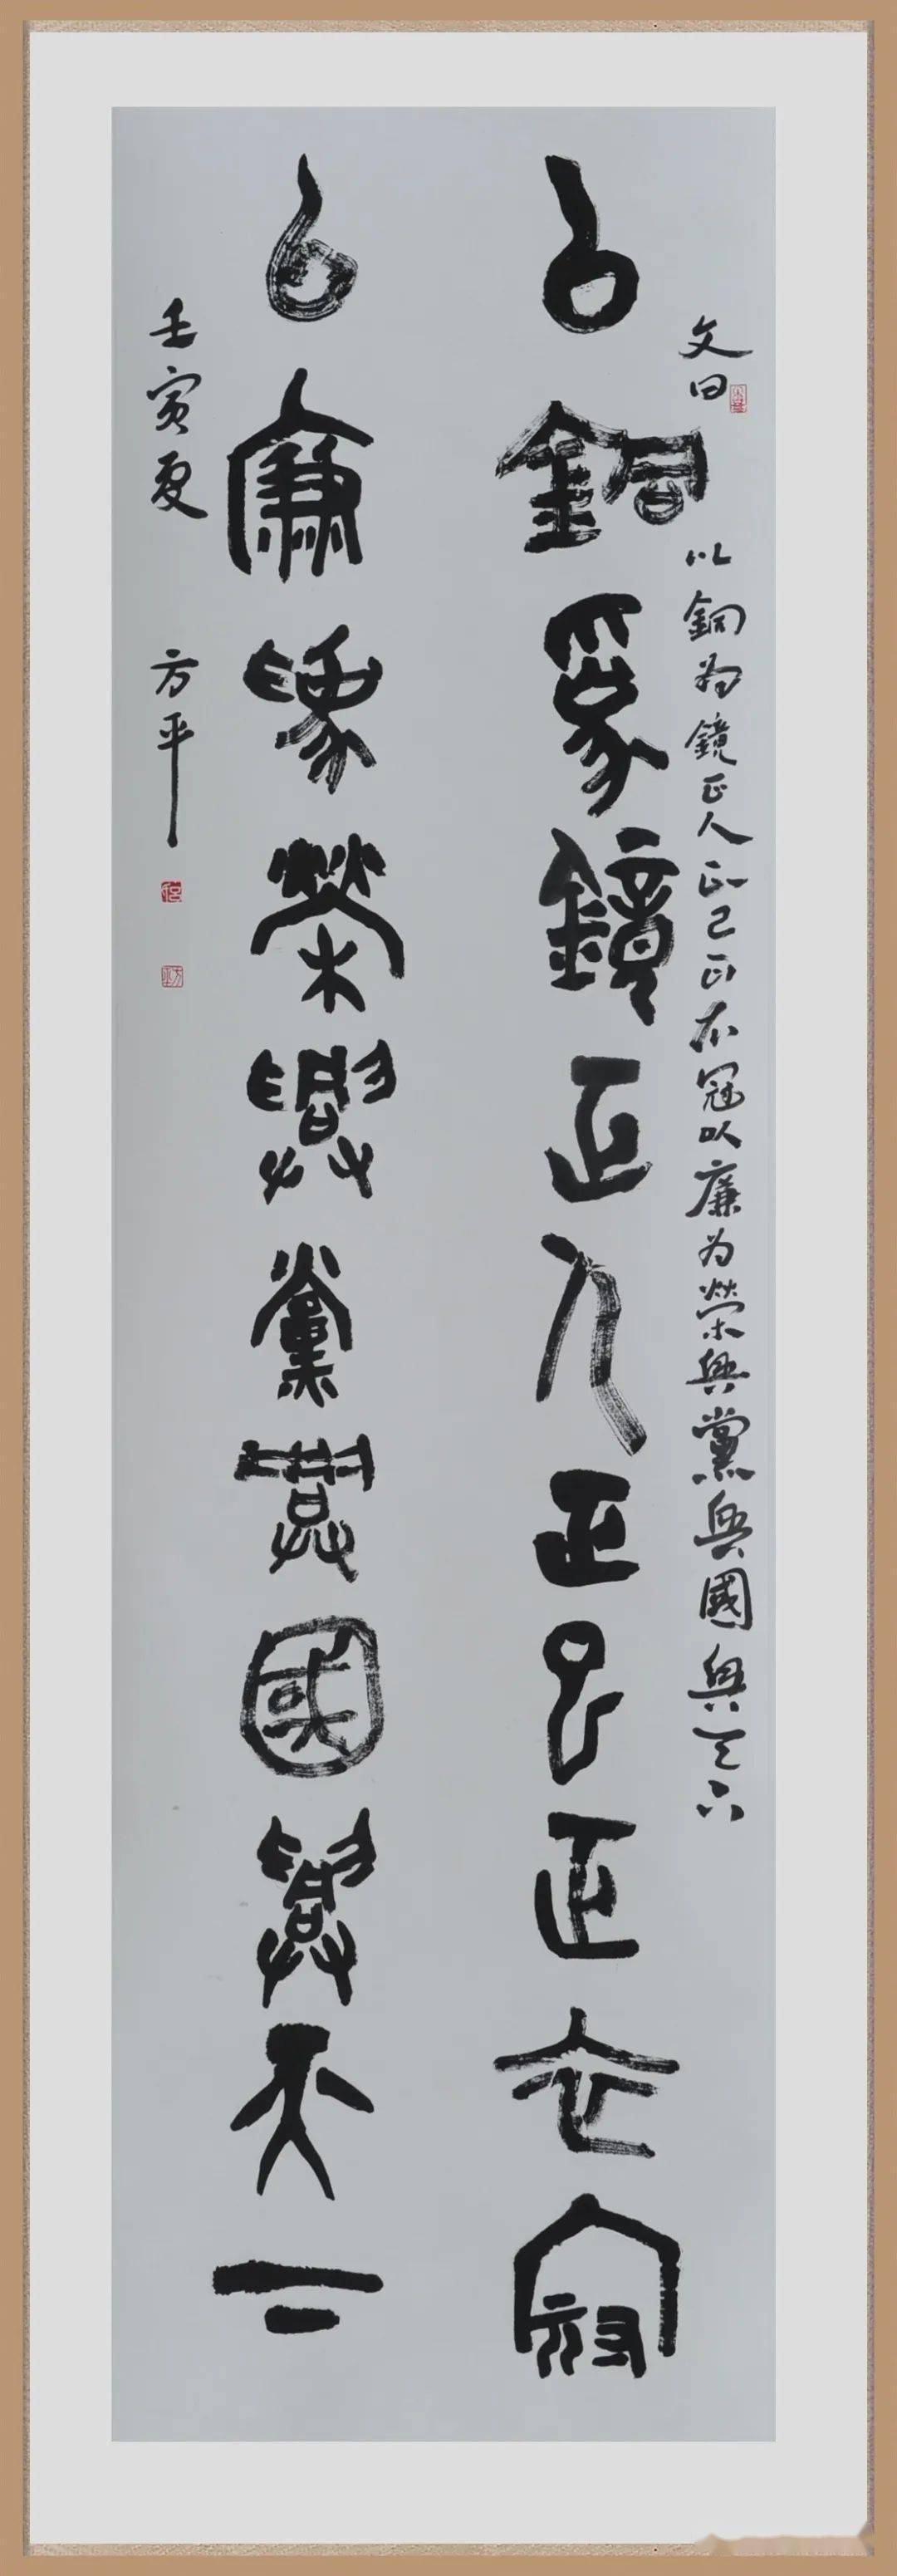 文曰 以銅为鏡正人正己正衣冠以廉为榮興黨興國興天下
以銅為鏡正人正己正衣冠
以廉為榮興黨興國興天下
壬寅夏 方平